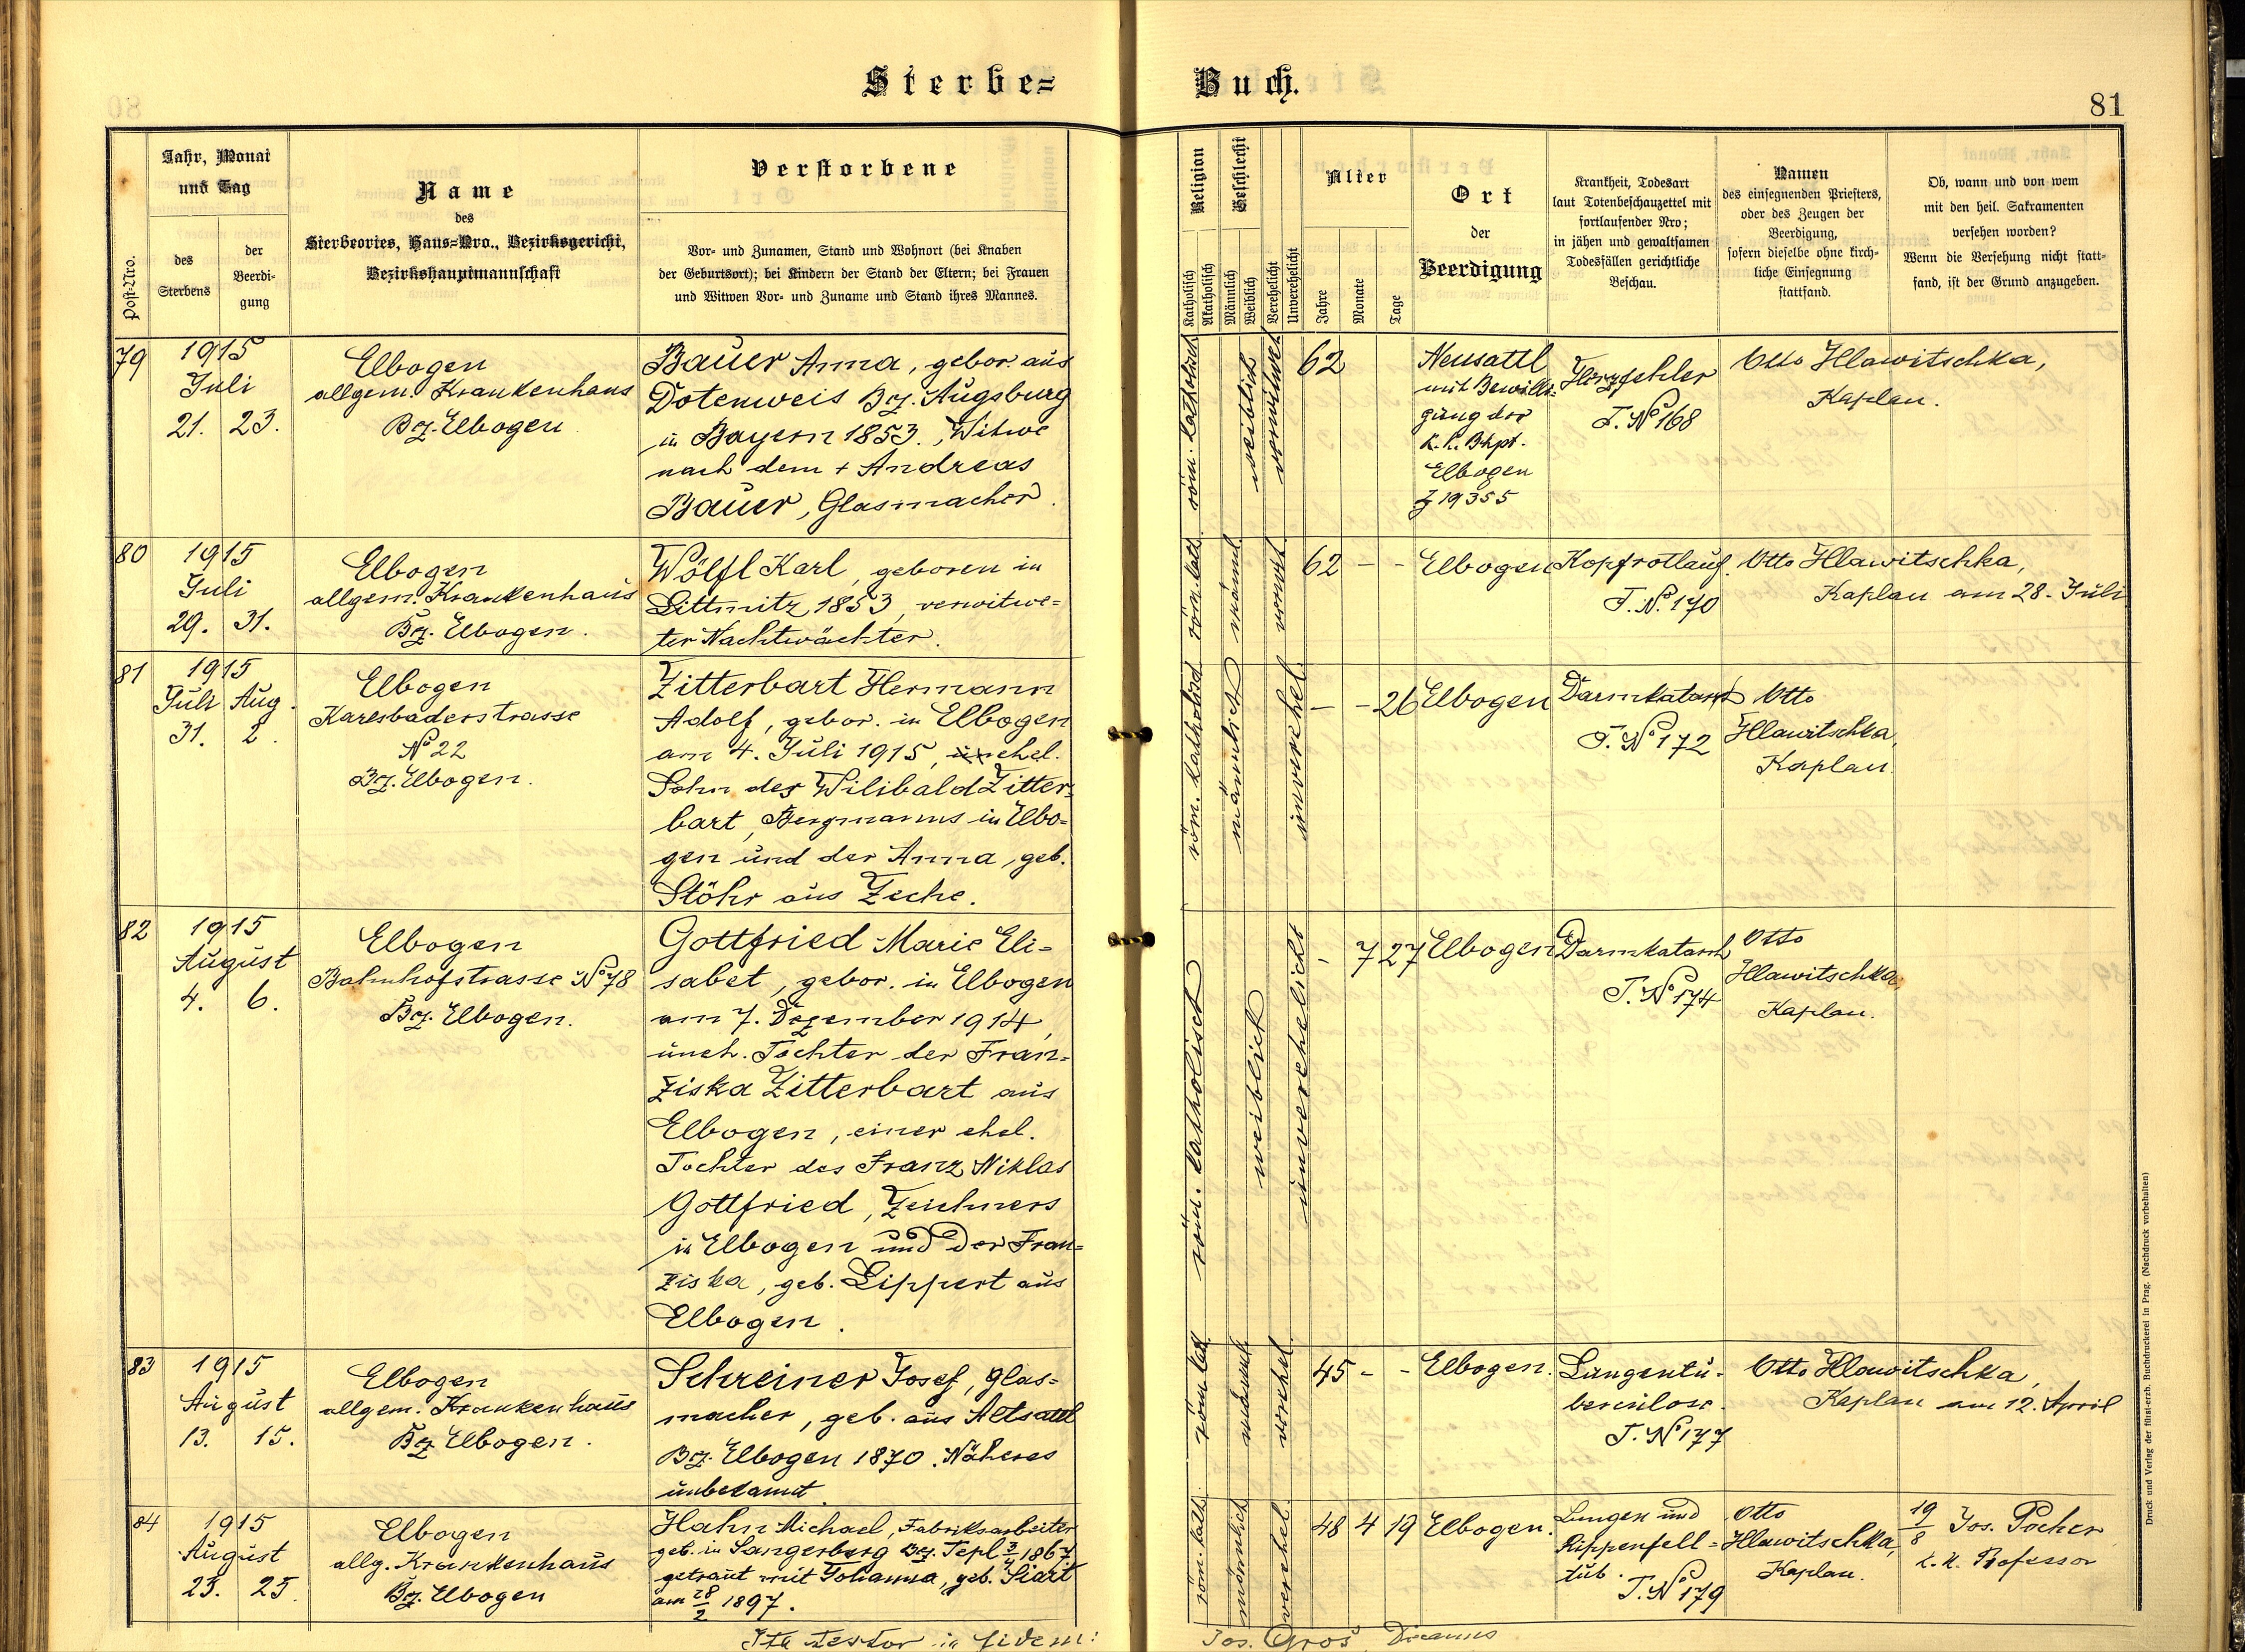 Sterbe=
Buch.
81
Post-Nro.
Jahr, Monat
und Tag
des
Sterbens
der
Beerdi-
gung
Name
des
Sterbeortes, Haus=Nro., Bezirksgericht,
Bezirkshauptmannschaft
Verstorbene
Vor- und Zunamen, Stand und Wohnort (bei Knaben
der Geburtsort); bei Kindern der Stand der Eltern; bei Frauen
und Witwen Vor- und Zuname und Stand ihres Mannes.
Religion
Katholisch
Akatholisch
Geschlecht
Männlich
Weiblich
Verehelicht
Unverehelicht
Alter
Jahre
Monate
Tage
Ort
der
Beerdigung
Krankheit, Todesart
laut Totenbeschauzettel mit
fortlaufender Nro;
in jähen und gewaltsamen
Todesfällen gerichtliche
Beschau.
Namen
des einsegnenden Priesters,
oder des Zeugen der
Beerdigung,
sofern dieselbe ohne kirch-
liche Einsegnung
stattfand.
Ob, wann und von wem
mit den heil. Sakramenten
versehen worden?
Wenn die Versehung nicht statt-
fand, ist der Grund anzugeben.
79
1915
Juli
21. 23.
Elbogen
allgem. Krankenhaus
Bz. Elbogen
Bauer Anna, gebor. aus
Dotenweis Bz. Augsburg
in Bayern 1853., Witwe
nach dem + Andreas
Bauer, Glasmacher.
röm. katholisch
weiblich
verwitwet
62
Neusattl
mit Bewilli=
gung der
k. k. Bhpt.
Elbogen
Z 19355
Herzfehler
T. No 168
Otto Hlawitschka,
Kaplan.
80
1915
Juli
29. 31.
Elbogen
allgem. Krankenhaus
Bz. Elbogen.
Wölfl Karl, geboren in
Littmitz 1853, verwitwe=
ter Nachtwächter.
röm. kath.
männl.
verwit.
62 - -
Elbogen
Kopfrotlauf.
T. No. 170
Otto Hlawitschka,
Kaplan am 28. Juli
81
1915
Juli Aug.
31. 2.
Elbogen
Karlsbaderstrasse
No 22
Bz. Elbogen.
Zitterbart Hermann
Adolf, gebor. in Elbogen
am 4. Juli 1915, ehel.
Sohn des Wilibald Zitter=
bart, Bergmanns in Elbo=
gen und der Anna, geb.
Stöhr aus Zeche.
röm. katholisch
männlich
unverehel.
- - 26
Elbogen
Darmkatarrh
T. No 172
Otto
Hlawitschka,
Kaplan.
82
1915
August
4. 6.
Elbogen
Bahnhofstrasse No 78
Bz. Elbogen.
Gottfried Marie Eli=
sabet, gebor. in Elbogen
am 7. Dezember 1914,
uneh. Tochter der Fran=
ziska Zitterbart aus
Elbogen, einer ehel.
Tochter des Franz Niklas
Gottfried, Zeichners
in Elbogen und der Fran=
ziska, geb. Lippert aus
Elbogen.
röm. katholisch
weiblich
unverehelicht
- 7 27
Elbogen
Darmkatarrh
T. No 174
Otto
Hlawitschka,
Kaplan.
83
1915
August
13. 15.
Elbogen
allgem. Krankenhaus
Bz Elbogen.
Schreiner Josef, Glas=
macher, geb. aus Altsattl
Bz. Elbogen 1870. Näheres
unbekannt
röm. kat.
männl.
verehel.
45 - -
Elbogen.
Lungentu-
berculose.
T. No 177
Otto Hlawitschka,
Kaplan am 12. April
84
1915
August
23. 25.
Elbogen
allg. Krankenhaus
Bz. Elbogen
Hahn Michael, Fabriksarbeiter
geb. in Sangerberg Bz. Tepl 3/4 1867
getraut mit Johanna, geb. Siart
am 28/2 1897.
röm. kath.
männlich
verehel.
48 4 19
Elbogen.
Lungen und
Rippenfell=
tub.
T. No 179
Otto
Hlawitschka,
Kaplan.
19/8 Jos. Pocher,
k. k. Professor
Ita testor in fidem:
Jos. Gros, Decanus
Druck und Verlag der fürst-erzb. Buchdruckerei in Prag. (Nachdruck vorbehalten)